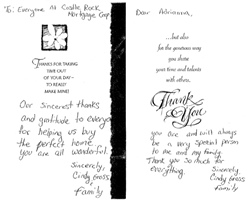 To: Everyone At Castle Rock
Mortgage Corp
THANKS FOR TAKING
TIME OUT
OF YOUR DAY-
TO REALLY
MAKE MINE!
Our sincerest thanks
and gratitude to everyone
for helping us buy
the perfect home.
you are all wonderful.
Sincerely,
Cindy Gross
& family
Dear Adrianna,
...but also
for the generous way
you share
your time and talents
with others.
Thank
You
you are and will always
be a very special person
to me and my family.
Thank you so much for
everything.
Sincerely
Cindy Gross
& family